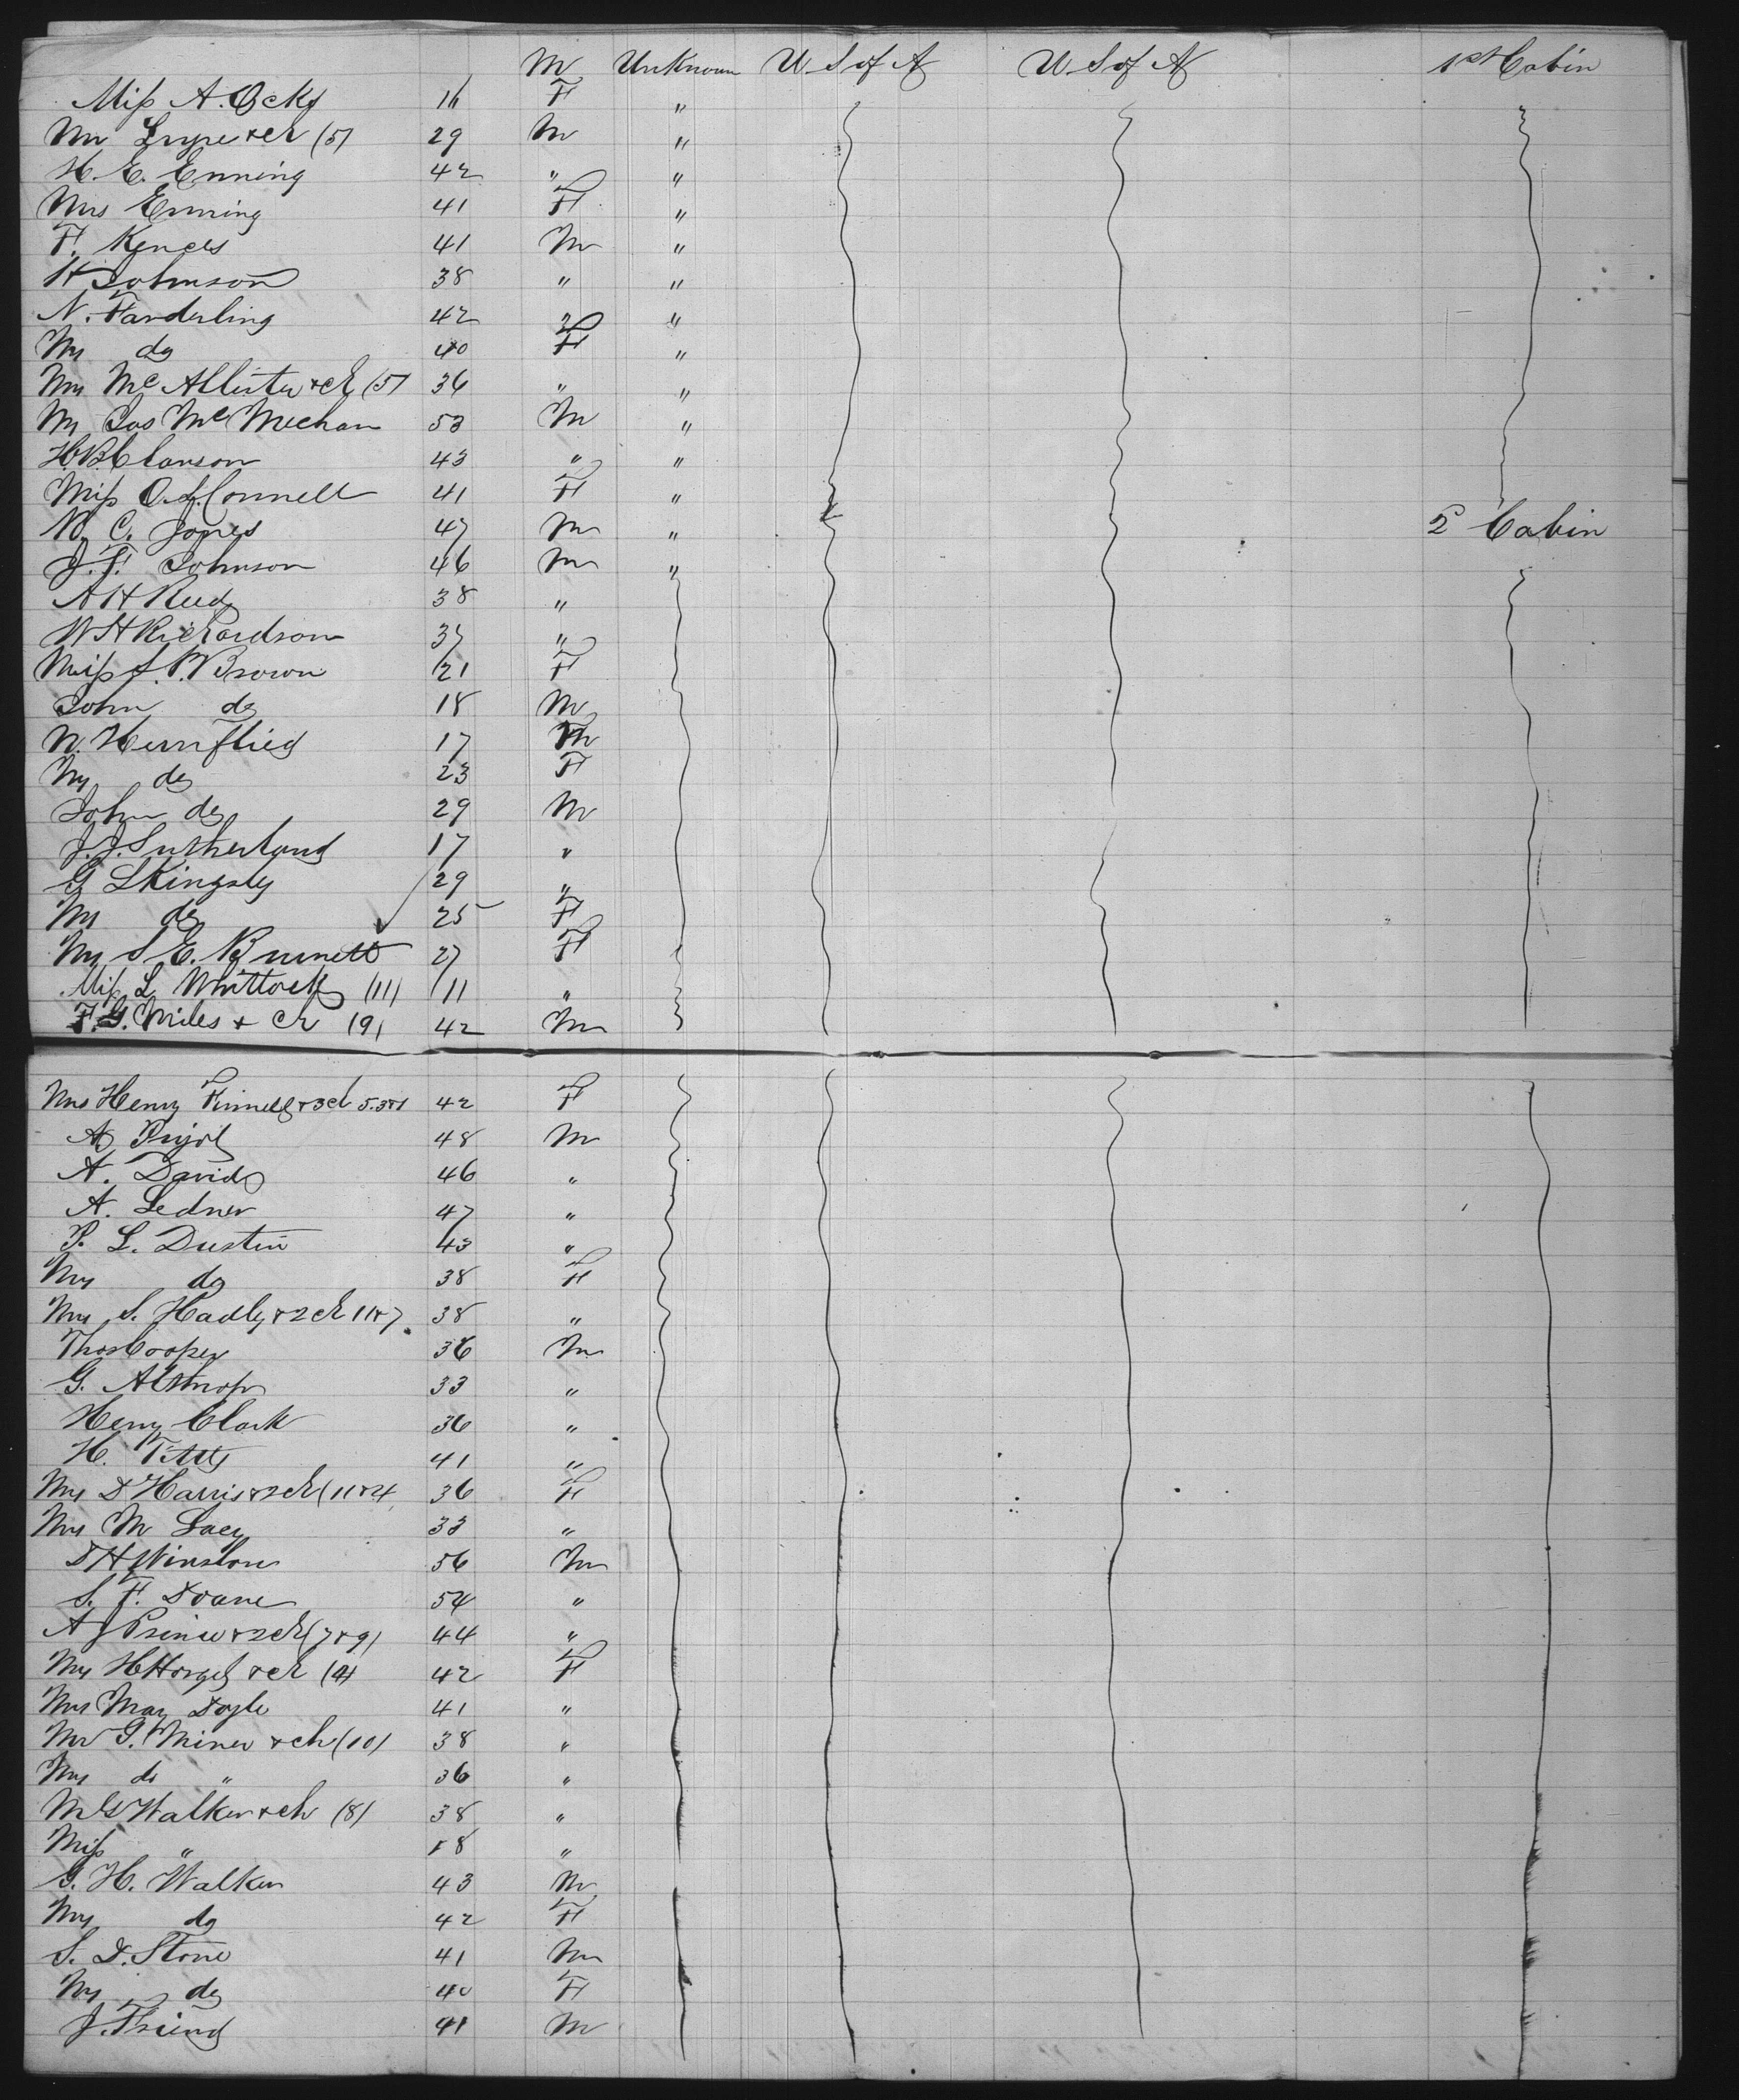 M Unknown U S of A U S of A 1st Cabin
Miss A. Ocks 16 F "
29 M "
H. E. Enning 42 " "
Mrs Enning 41 F "
F. 41 M "
H Johnson 38 " "
N. Fanderling 42 "
Mrs do 40 F "
Mrs McAllister & ch (5) 36 " "
Mr Jas McMechan 53 M "
H. B. Clanson 43 " "
Miss O. J. Connell 41 F "
N. C. Jones 47 M " 2 Cabin
J. F. Johnson 46 M "
A H Reed 38 "
W H Richardson 37 "
Miss S. P. Brown 21 F
John do 18 M
N. 17 M
Mrs do 23 F
John do 29 M
J. J. Sutherland 17 "
G L Kingsly 29 "
Mrs do 25 F
Mrs S E. Burnett 27 F
Miss L Whittock (11) 11 "
F. G. Miles & ch (9) 42 M
Mrs Henry & 3 ch 5.3&1 42 F
A Pujol 48 M
A. David 46 "
A. Ledner 47 "
P. L. Dustin 43 "
Mrs do 38 F
Mrs S. Hadly & 2 ch 11&7 38 "
Thos Cooper 36 M
G. 33 "
Henry Clark 36 "
H. Titts 41 "
Mrs D Harris & 2 ch (11&4 36 F
Mrs M Lacy 33 "
D H Winslow 56 M
S. F. Doane 54 "
A J Prince & 2 ch (7&9) 44 "
Mrs H & ch (4) 42 F
Mrs Mar Doyle 41 "
Mr G. Miner & ch (10) 38 "
Mrs do " 36 "
Walker & ch (8) 38 "
Miss " 18 "
G. H. Walker 43 M
Mrs do 42 F
S. D. Stone 41 M
Mrs do 40 F
J. Friend 41 M